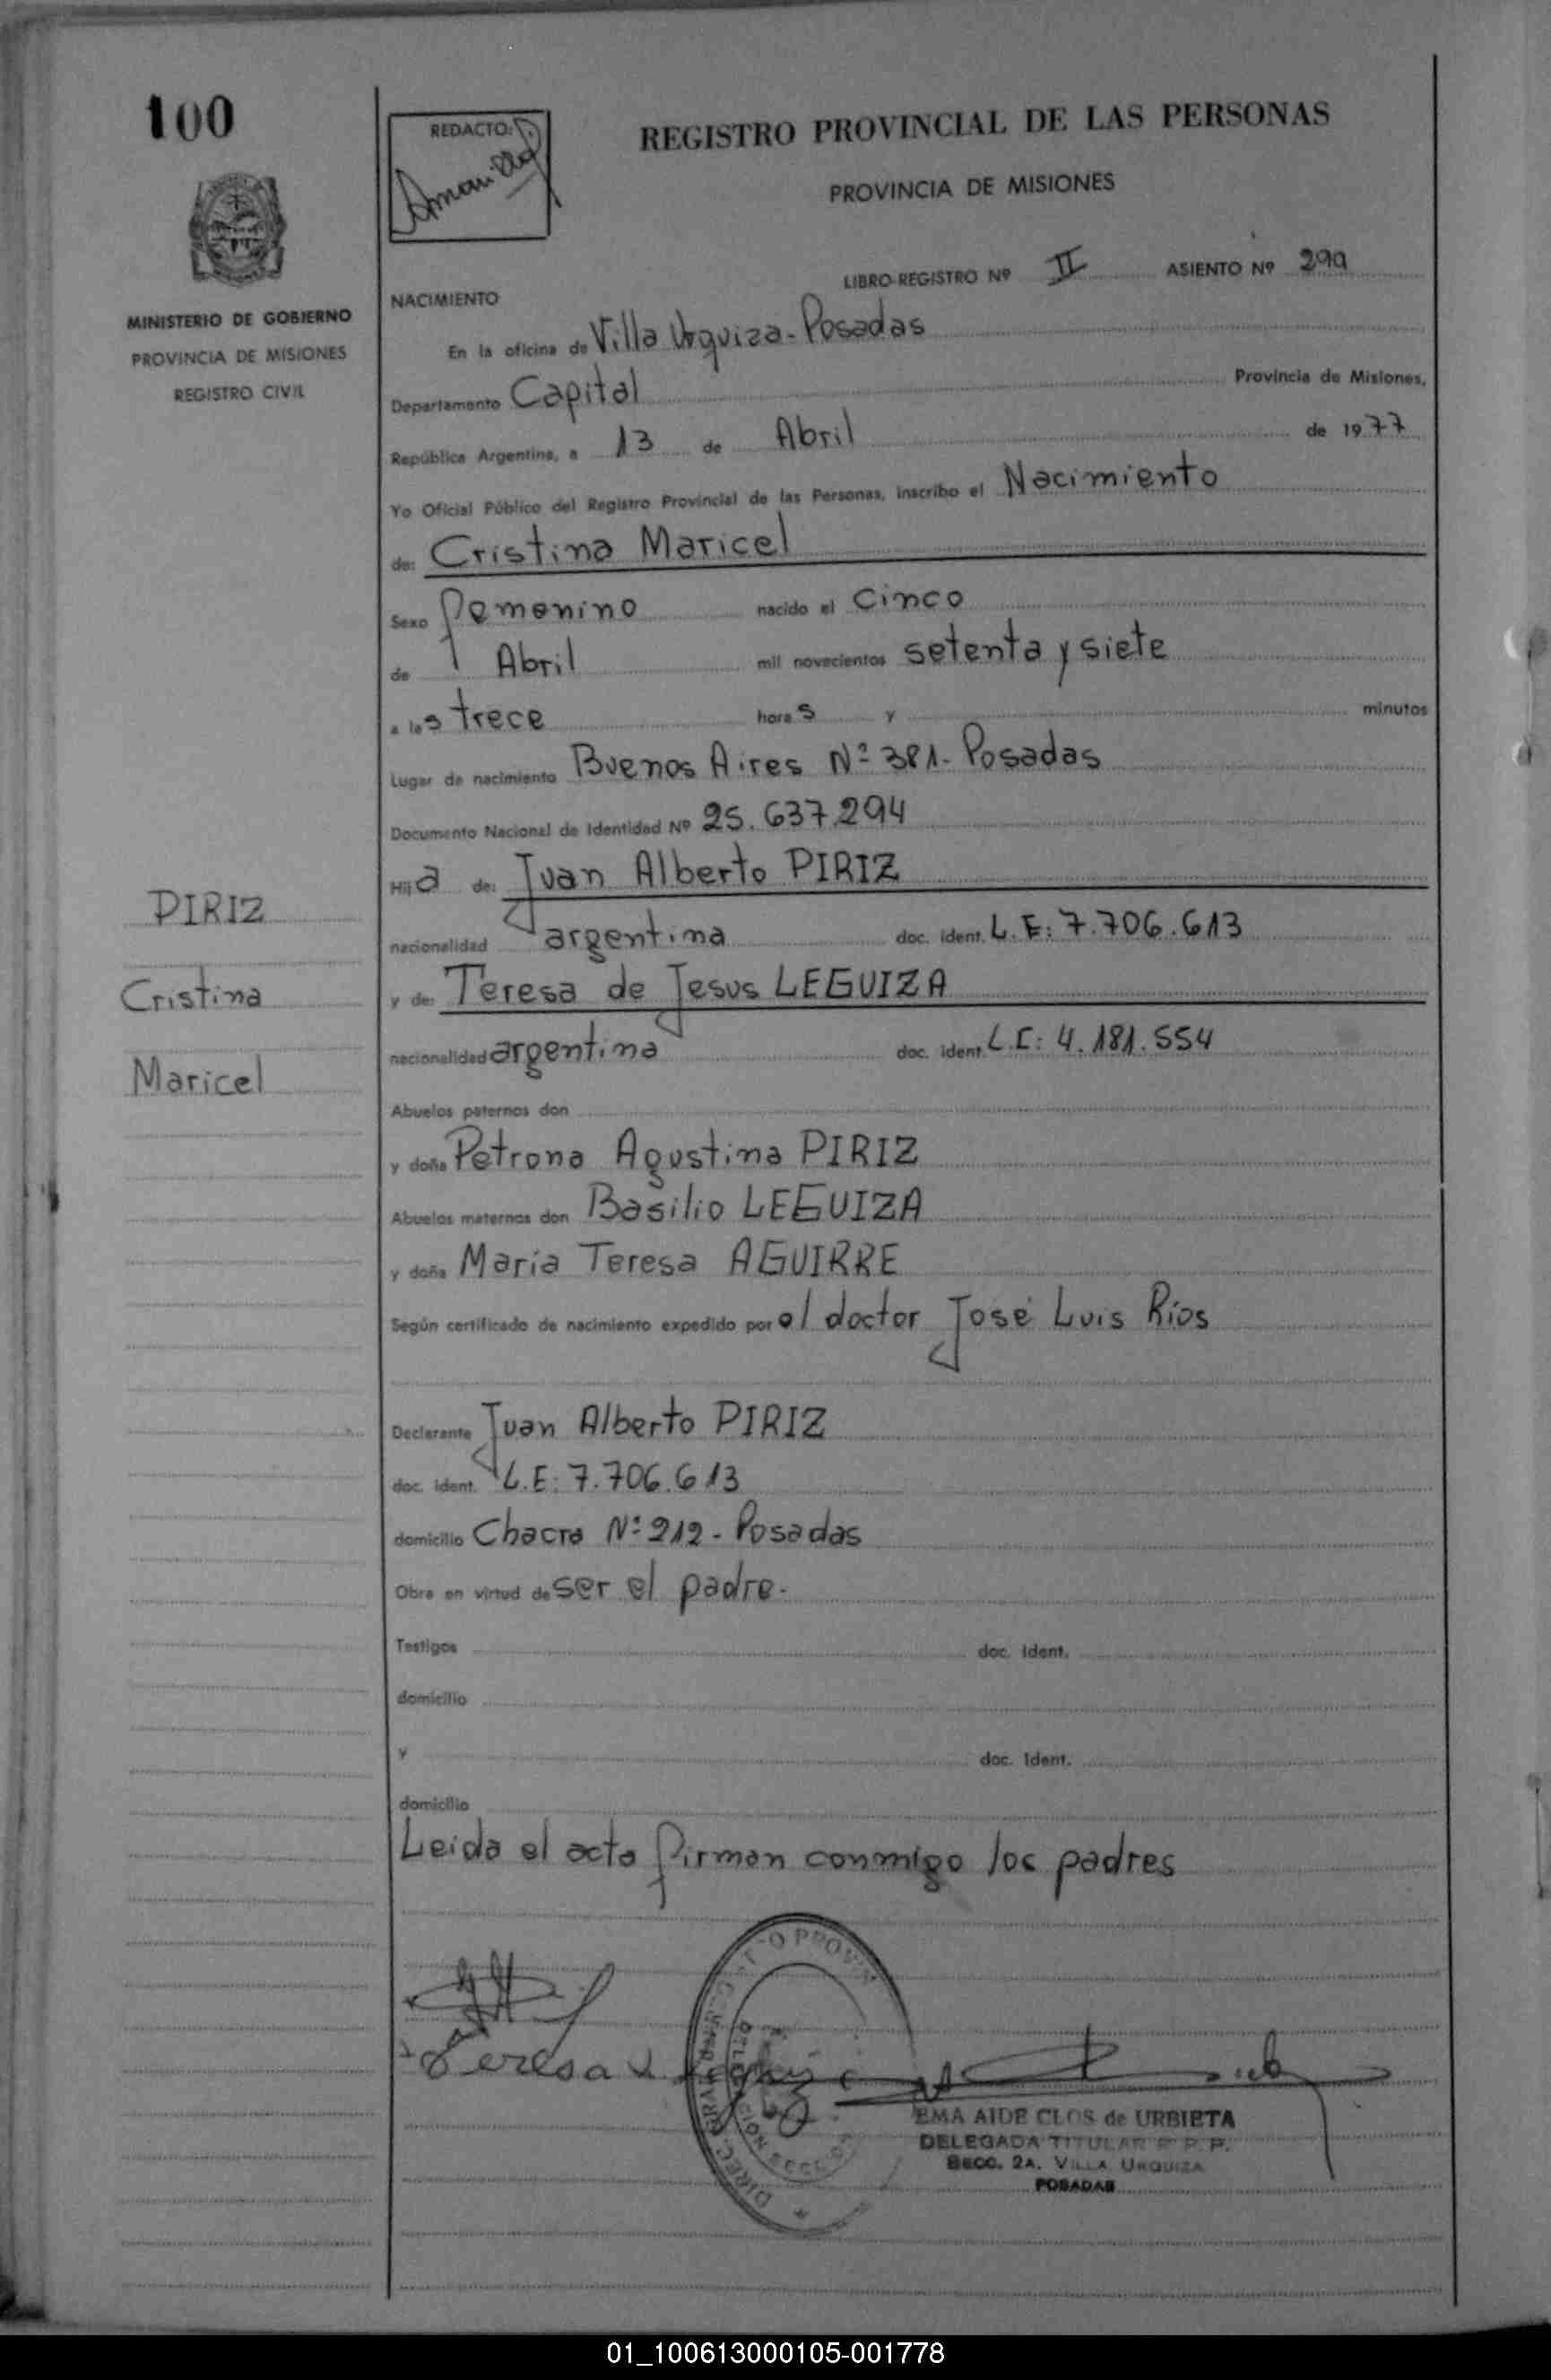 100
REDACTO:
REGISTRO PROVINCIAL DE LAS PERSONAS
PROVINCIA DE MISIONES
MINISTERIO DE GOBIERNO
PROVINCIA DE MISIONES
REGISTRO CIVIL
LIBRO-REGISTRO Nº II ASIENTO Nº 299
NACIMIENTO
En la oficina de Villa Urquiza - Posadas
Departamento Capital Provincia de Misiones,
República Argentina, a 13 de Abril de 1977
Yo Oficial Público del Registro Provincial de las Personas, inscribo el Nacimiento
de: Cristina Maricel
Sexo Femenino nacido el Cinco
de Abril mil novecientos setenta y siete
a las trece horas y minutos
Lugar de nacimiento Buenos Aires Nº 381 - Posadas
Documento Nacional de Identidad Nº 25.637.294
Hija de: Juan Alberto PIRIZ
nacionalidad argentina doc. ident. L.E: 7.706.613
y de: Teresa de Jesus LEGUIZA
nacionalidad argentina doc. ident. L.C: 4.181.554
PIRIZ
Cristina
Maricel
Abuelos paternos don
y doña Petrona Agustina PIRIZ
Abuelos maternos don Basilio LEGUIZA
y doña María Teresa AGUIRRE
Según certificado de nacimiento expedido por el doctor José Luis Ríos
Declarante Juan Alberto PIRIZ
doc. ident. L.E: 7.706.613
domicilio Chacra Nº 212 - Posadas
Obra en virtud de ser el padre.
Testigos doc. ident.
domicilio
y doc. ident.
domicilio
Leida el acta firman conmigo los padres
Teresa
EMA AIDE CLOS de URBIETA
DELEGADA TITULAR R. P. P.
SECC. 2A. VILLA URQUIZA
POSADAS
01_100613000105-001778